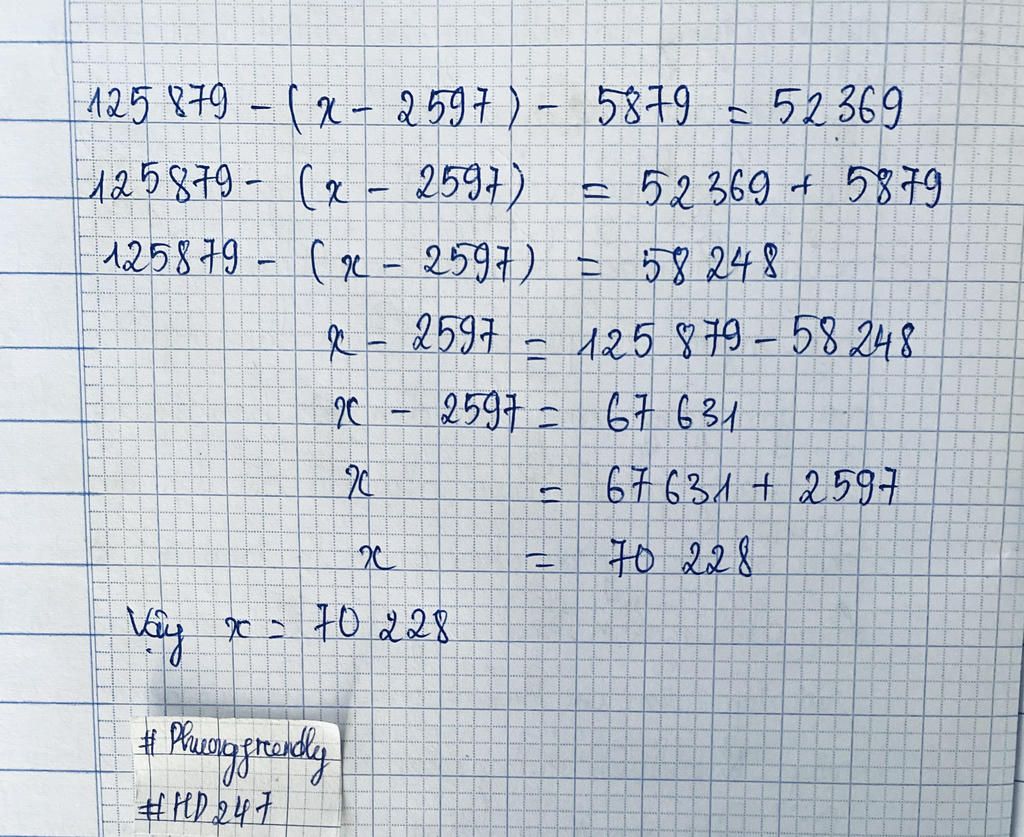 125 879 - (x - 2597) - 5879 = 52 369
125879 - (x - 2597) = 52 369 + 5879
125879 - (x - 2597) = 58 248
x - 2597 = 125 879 - 58 248
x - 2597 = 67 631
x = 67 631 + 2597
x = 70 228
Vậy x = 70 228
# Phuonggreendly
#HD247